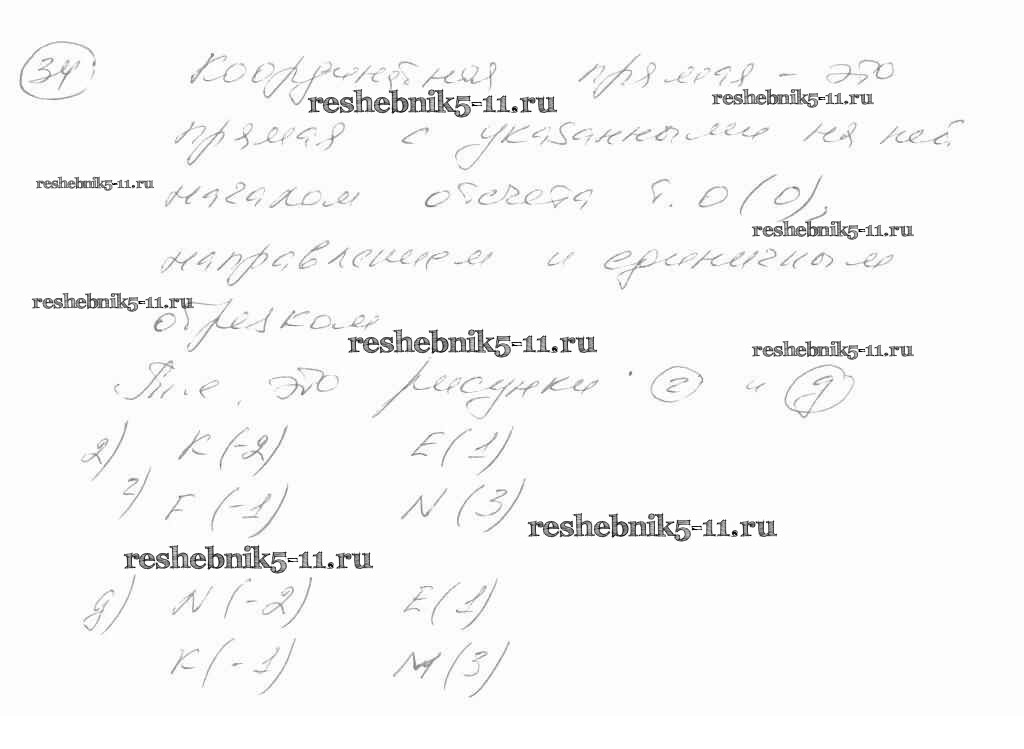 34 Координатная прямая - это
reshebnik5-11.ru reshebnik5-11.ru
прямая с указанными на ней
reshebnik5-11.ru началом отсчета т. О (0),
reshebnik5-11.ru
направлением и единичным
reshebnik5-11.ru
отрезком
reshebnik5-11.ru reshebnik5-11.ru
Т.е. это рисунки г и д
2) K (-2) E (1)
г) F (-1) N (3)
reshebnik5-11.ru
reshebnik5-11.ru
д) N (-2) E (1)
K (-1) M (3)